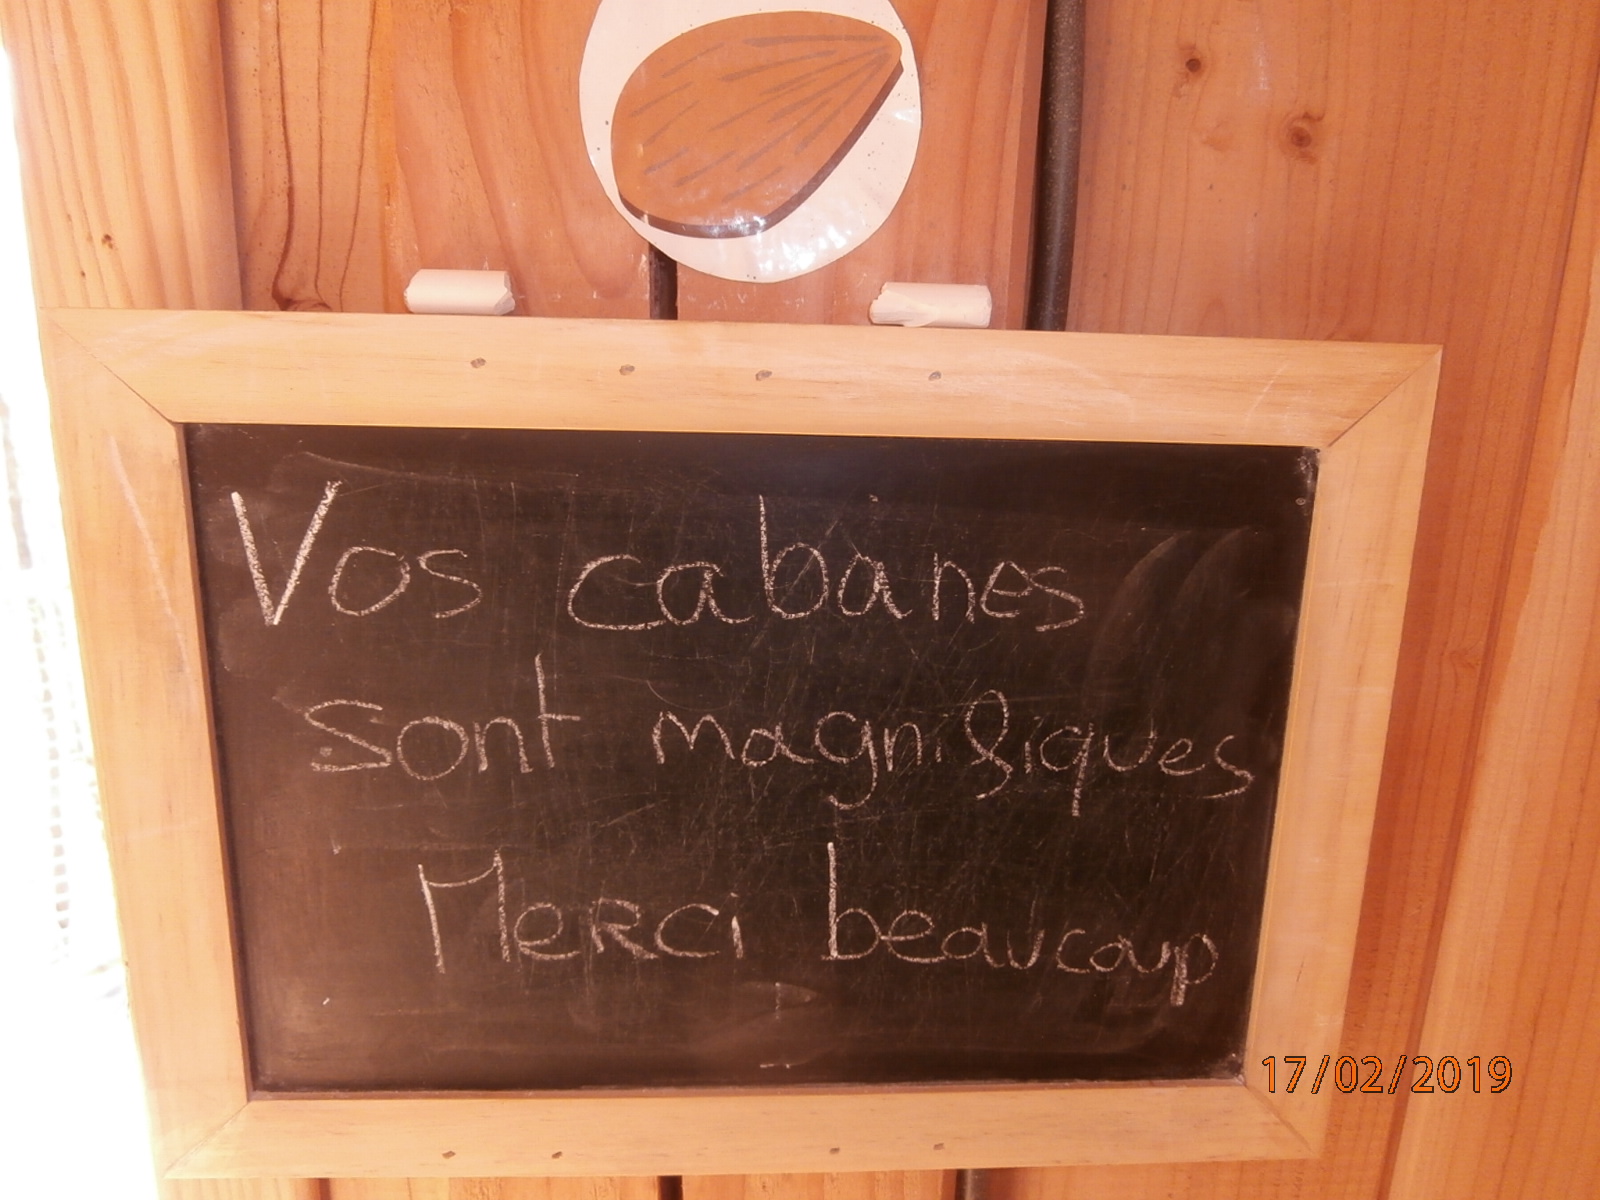 Vos cabanes
sont magnifiques
Merci beaucoup
17/02/2019